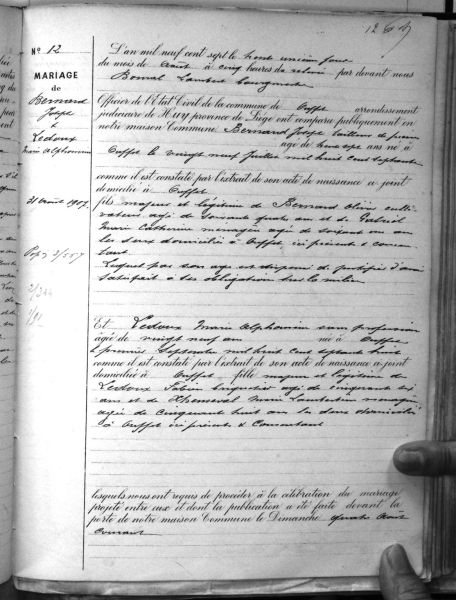 N° 12
MARIAGE
de
Bernard
Joseph
&
Ledoux
Marie Alphonsine
31 août 1907
L'an mil neuf cent sept le trente unième jour
du mois de août à cinq heures du relevé par devant nous
Bonval Lambert bourgmestre
Officier de l'État Civil de la commune de Ouffet arrondissement
judiciaire de Huy province de Liége ont comparu publiquement en
notre maison Commune Bernard Joseph tailleur de pierres
âgé de trente sept ans né à
Ouffet le vingt neuf juillet mil huit cent septante
comme il est constaté par l'extrait de son acte de naissance ci joint
domicilié à Ouffet
fils majeur et légitime de Bernard culti-
vateur agé de soixante quatre ans et de
Marie Catherine ménagère agée de soixante un ans
les deux domiciliés à Ouffet ici présents & consen-
tant
Lequel par son age est dispensé de justifier d'avoir
satisfait à ses obligations sur la milice
Et Ledoux Marie Alphonsine sans profession
âgée de vingt neuf ans née à Ouffet
le premier Septembre mil huit cent septante huit
comme il est constaté par l'extrait de son acte de naissance ci joint
domiciliée à Ouffet fille majeure et légitime de
Ledoux agé de cinquante six
ans et de Marie Lambertine ménagère
agée de cinquante huit ans les deux domiciliés
à Ouffet ici présents & consentant
lesquels nous ont requis de procéder à la célébration du mariage
projeté entre eux et dont la publication a été faite devant la
porte de notre maison Commune le Dimanche quatre août
courant